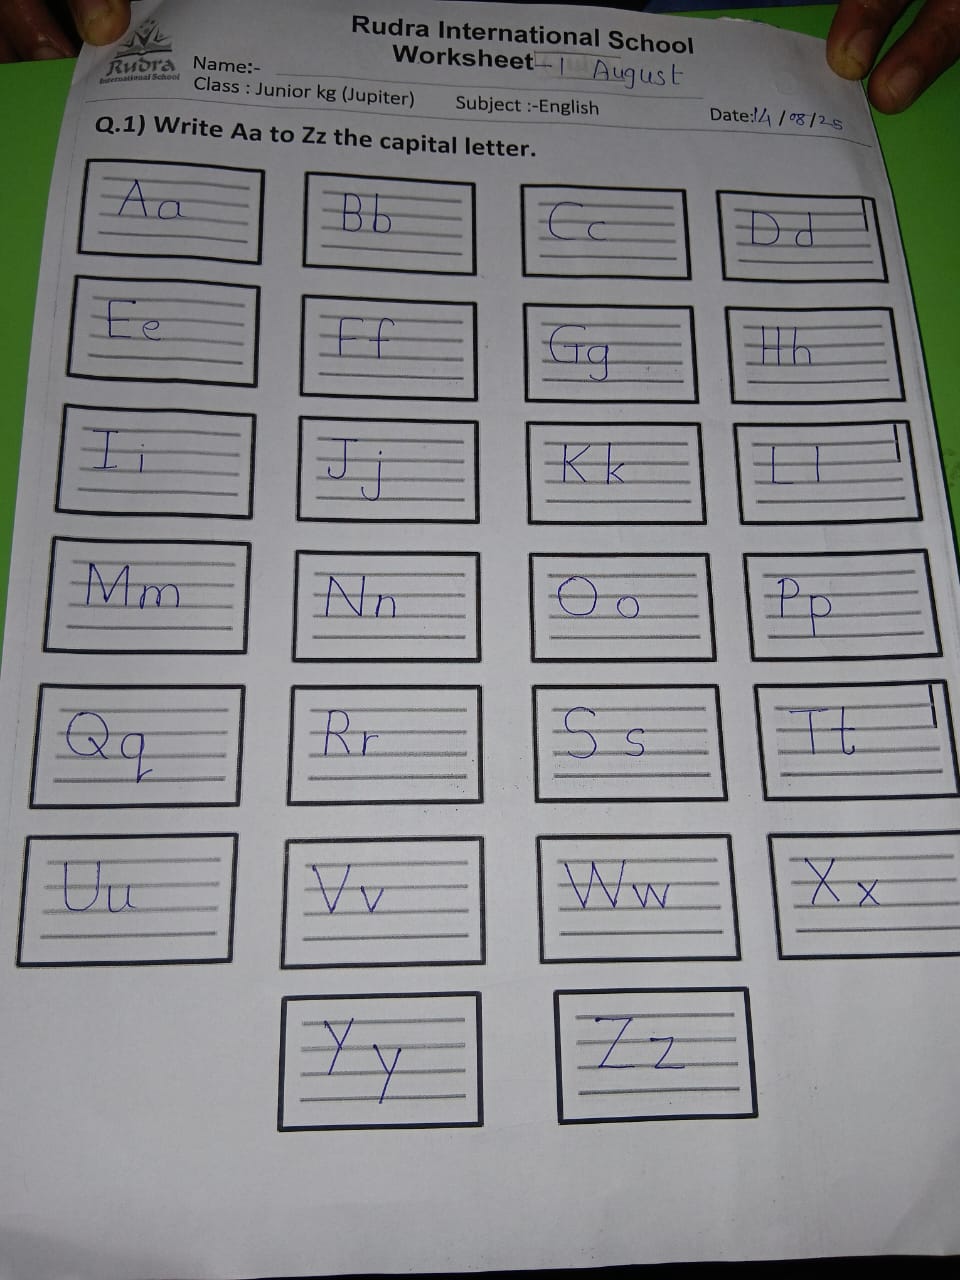 Rudra International School
Rudra
International School
Worksheet-1 August
Name:-
Class : Junior kg (Jupiter) Subject :-English Date:14/08/25
Q.1) Write Aa to Zz the capital letter.
Aa Bb Cc Dd
Ee Ff Gg Hh
Ii Jj Kk Ll
Mm Nn Oo Pp
Qq Rr Ss Tt
Uu Vv Ww Xx
Yy Zz